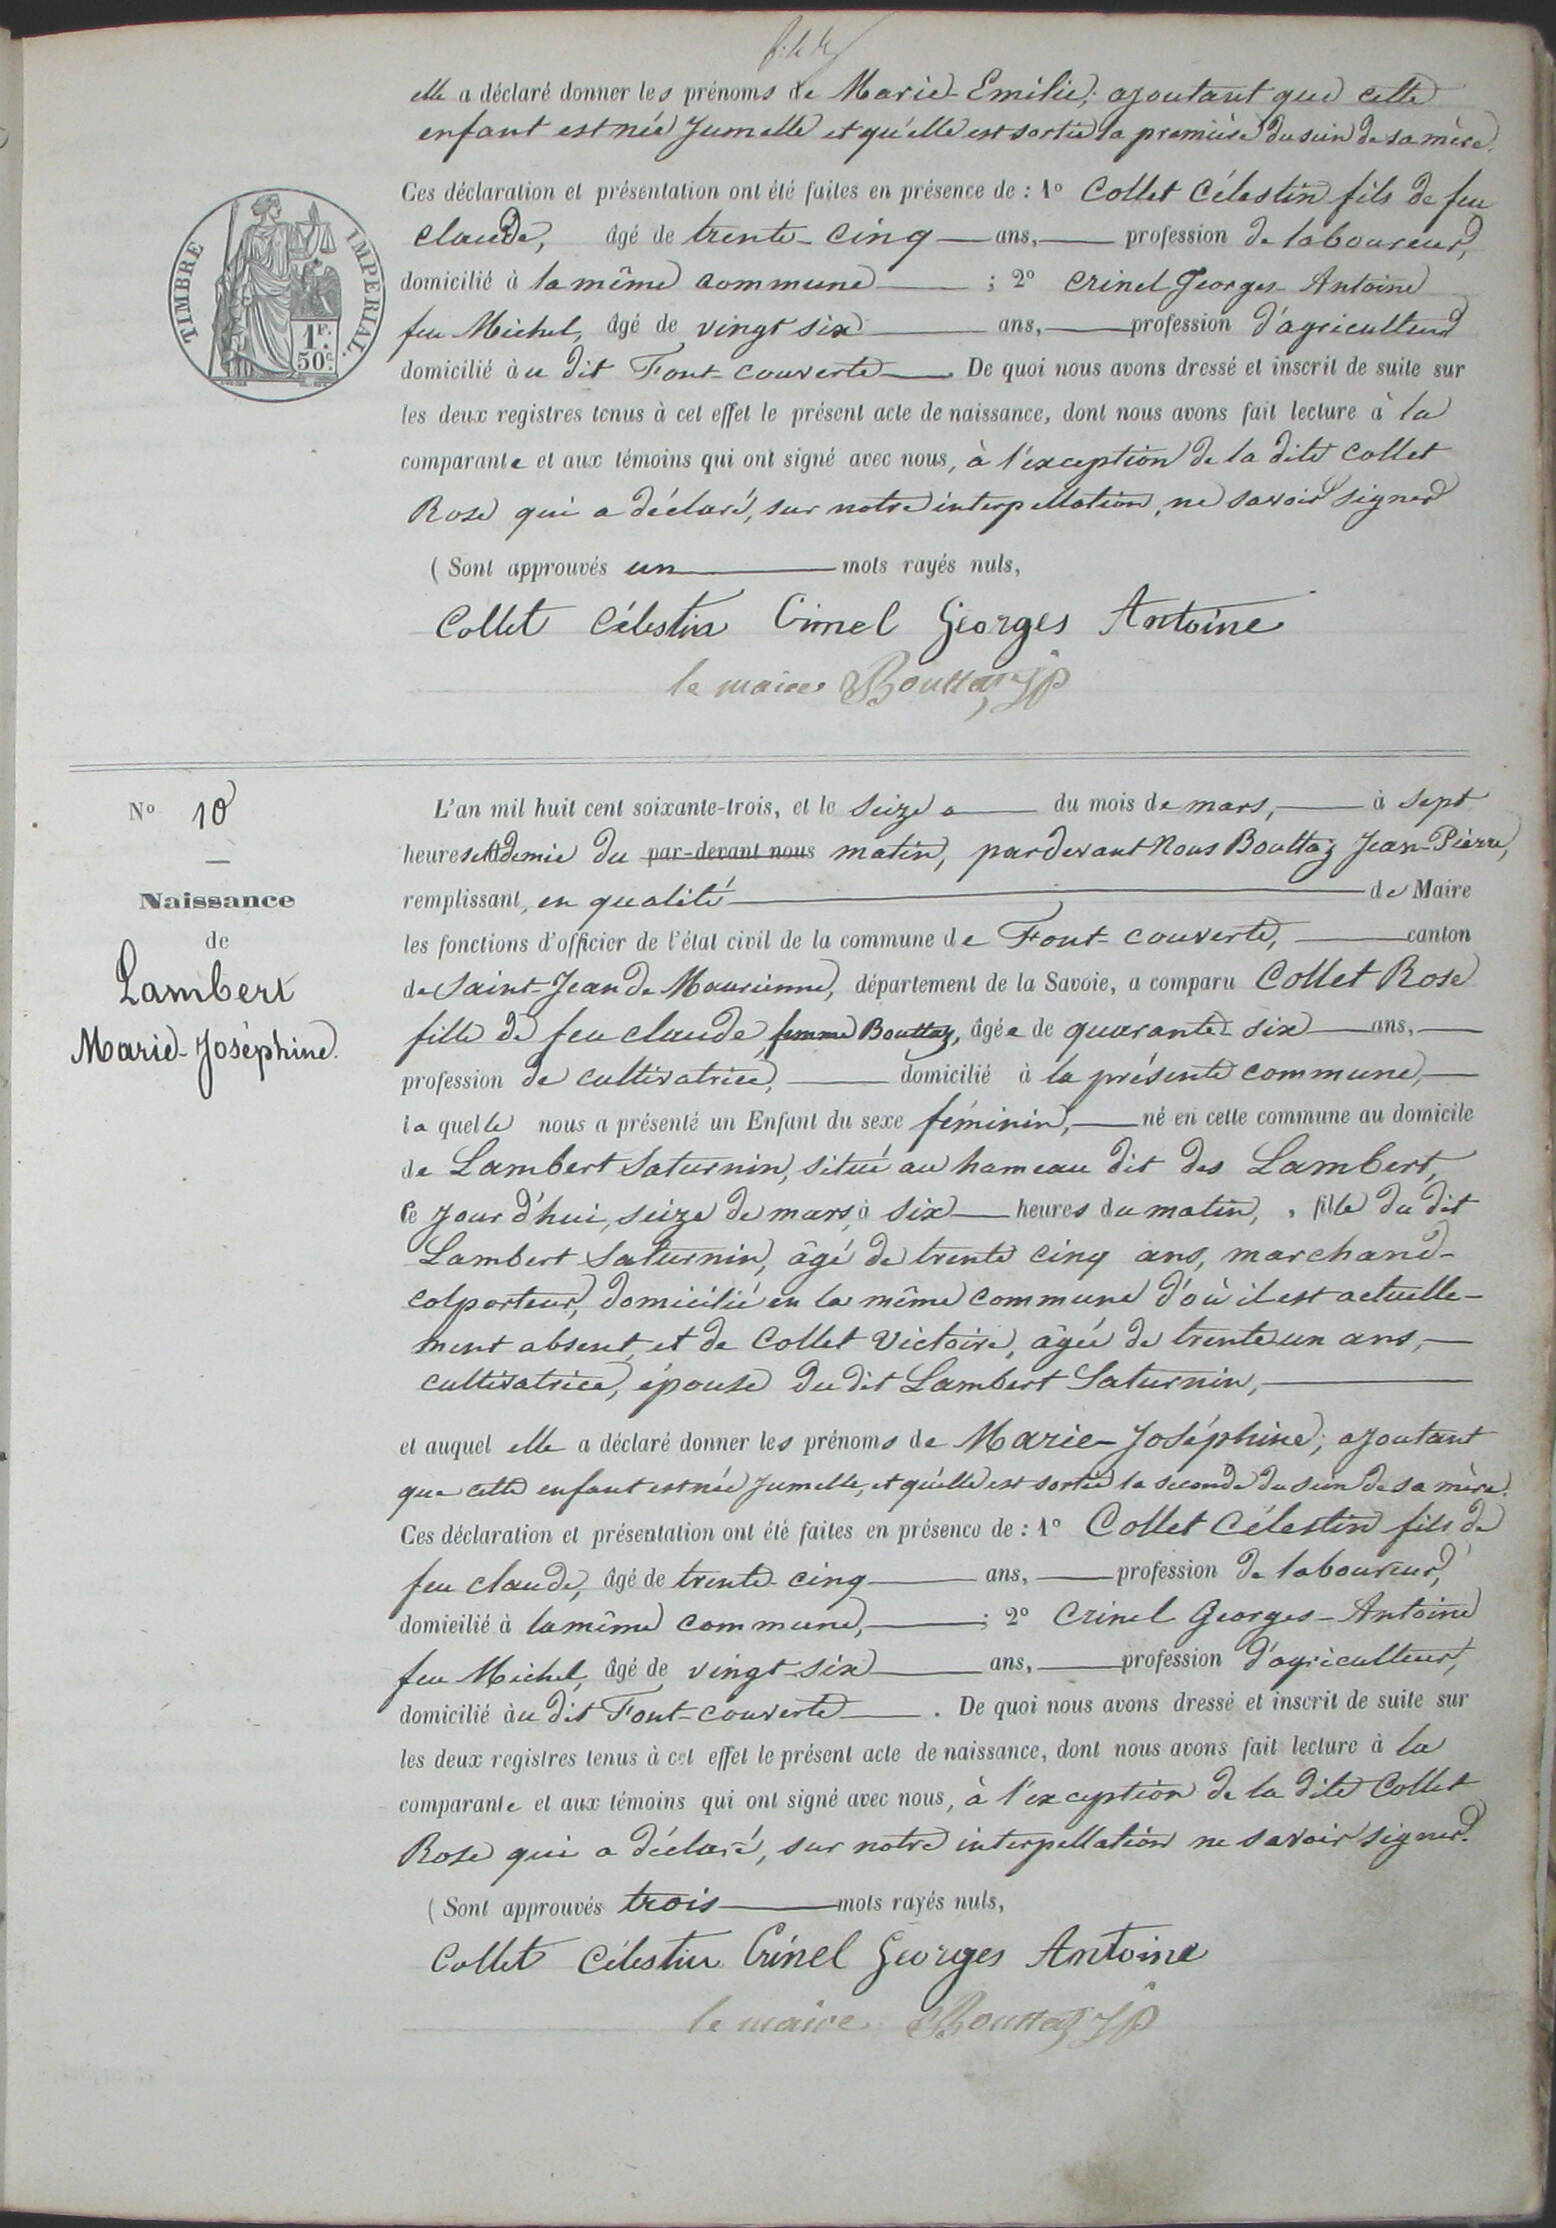 elle a déclaré donner les prénoms de Marie-Emilie; ajoutant que cette
enfant est née Jumelle et qu'elle est sortie la première du sein de sa mère.
TIMBRE IMPERIAL.
1F.
50c.
Ces déclaration et présentation ont été faites en présence de : 1º Collet Célestin fils de feu
Claude, âgé de trente-cinq ans, profession de laboureur,
domicilié à la même commune ; 2º Crinel Georges-Antoine
feu Michel, âgé de vingt six ans, profession d'agriculteur
domicilié àu dit Font-couverte. De quoi nous avons dressé et inscrit de suite sur
les deux registres tenus à cet effet le présent acte de naissance, dont nous avons fait lecture à la
comparante et aux témoins qui ont signé avec nous, à l'exception de la dite Collet
Rose qui a déclaré, sur notre interpellation, ne savoir signer
( Sont approuvés un mots rayés nuls,
Collet Célestin Crinel Georges Antoine
le maire Bouttaz JP
Nº 10
Naissance
de
Lambert
Marie-Joséphine.
L'an mil huit cent soixante-trois, et le seize du mois de mars, à sept
heures et demie du par-devant nous matin, pardevant Nous Bouttaz Jean-Pierre,
remplissant, en qualité de Maire
les fonctions d'officier de l'état civil de la commune de Font-couverte, canton
de Saint-Jean de Maurienne, département de la Savoie, a comparu Collet Rose
fille de feu Claude, femme Bouttaz, âgée de quarante-six ans,
profession de cultivatrice, domicilié à la présente commune,
laquelle nous a présenté un Enfant du sexe féminin, né en cette commune au domicile
de Lambert Saturnin, situé au hameau dit des Lambert,
Ce jourd'hui, seize de mars, à six heures du matin, fille du dit
Lambert Saturnin, âgé de trente cinq ans, marchand-
colporteur, domicilié en la même commune d'où il est actuelle-
ment absent, et de Collet Victoire, âgée de trente un ans,
cultivatrice, épouse du dit Lambert Saturnin,
et auquel elle a déclaré donner les prénoms de Marie-Joséphine; ajoutant
que cette enfant est née Jumelle, et qu'elle est sortie la seconde du sein de sa mère.
Ces déclaration et présentation ont été faites en présence de : 1º Collet Célestin fils de
feu Claude, âgé de trente-cinq ans, profession de laboureur,
domicilié à la même commune, ; 2º Crinel Georges-Antoine
feu Michel, âgé de vingt-six ans, profession d'agriculteur,
domicilié àu dit Font-couverte. De quoi nous avons dressé et inscrit de suite sur
les deux registres tenus à cet effet le présent acte de naissance, dont nous avons fait lecture à la
comparante et aux témoins qui ont signé avec nous, à l'exception de la dite Collet
Rose qui a déclaré, sur notre interpellation ne savoir signer.
( Sont approuvés trois mots rayés nuls,
Collet Célestin Crinel Georges Antoine
le maire Bouttaz JP